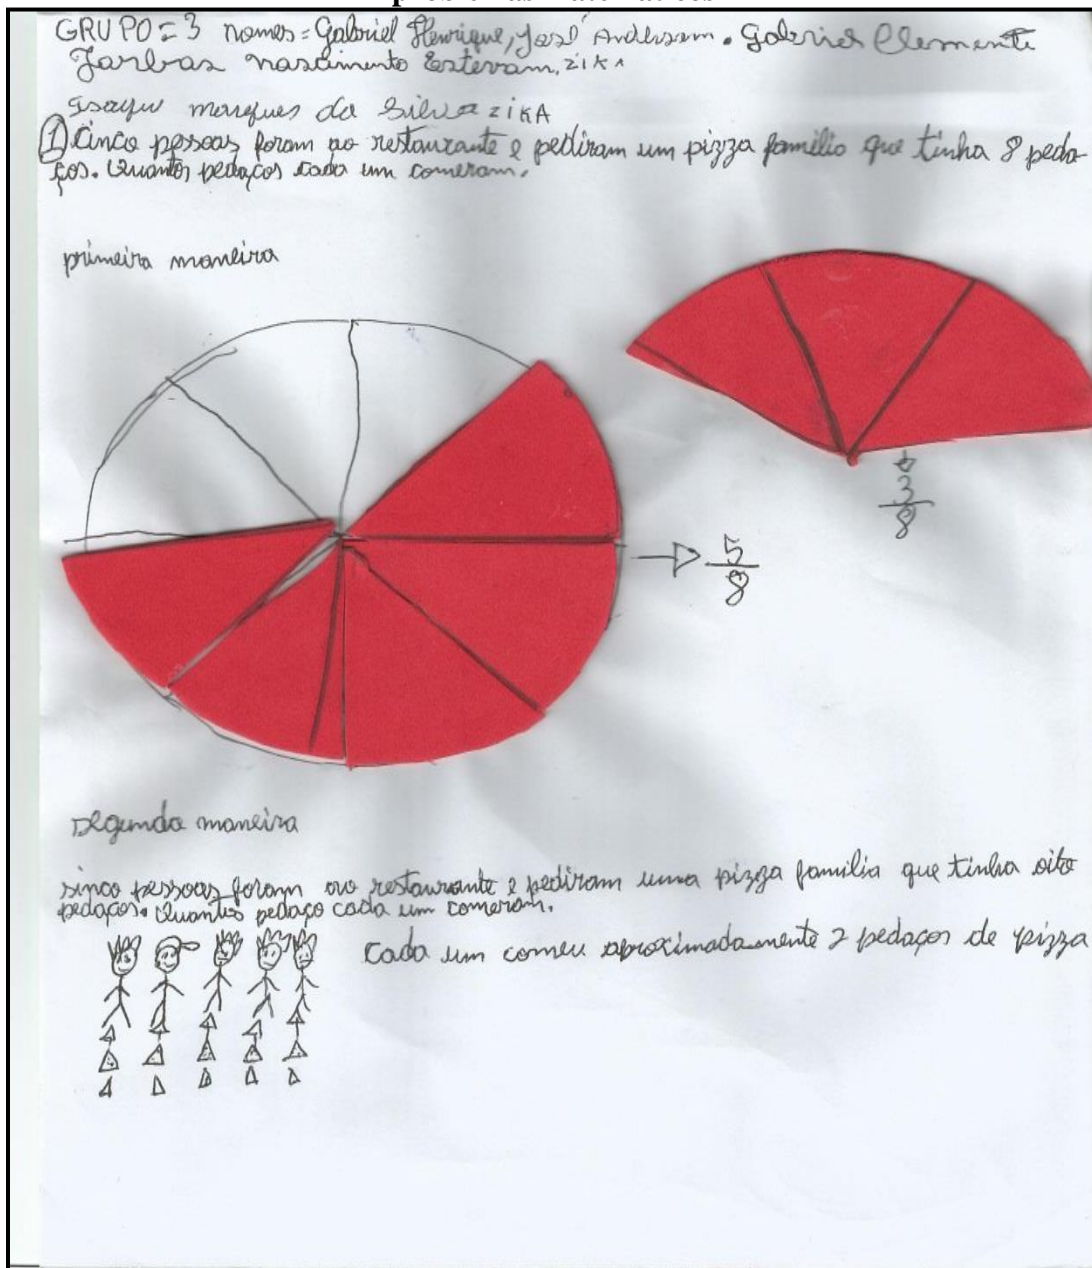 problemas matemáticos
GRUPO = 3 nomes = Gabriel Henrique, José Anderson. Gabriel Clemente
Jarbas nascimento Estevam, zika
marques da Silva ziKA
① Cinco pessoas foram ao restaurante e pediram um pizza familio que tinha 8 peda-
ços. Quantos pedaços cada um comeram.
primeira maneira
3
8
5
8
segunda maneira
sinco pessoas foram ao restaurante e pediram uma pizza familia que tinha oito
pedaços. Quantos pedaço cada um comeram.
Cada um comeu aproximadamente 2 pedaços de pizza